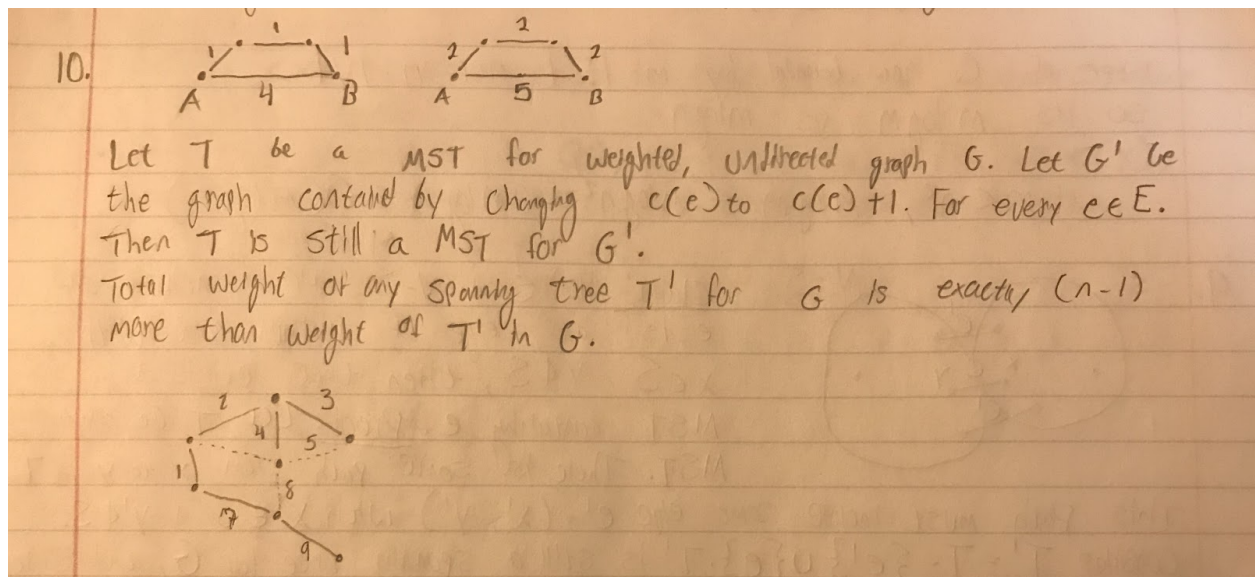 10.
1 1 1
A 4 B
2 2 2
A 5 B
Let T be a MST for weighted, undirected graph G. Let G' be
the graph contaied by changing c(e) to c(e) +1. For every e∈E.
Then T is still a MST for G'.
Total weight of any spanning tree T' for G is exactly (n-1)
more than weight of T' in G.
2 3
4 5
1
8
7
9